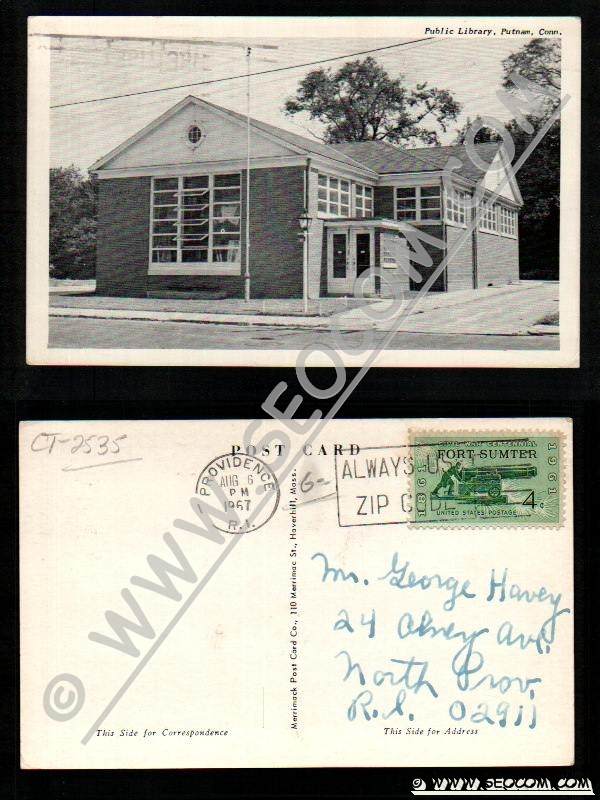 Public Library, Putnam, Conn.
© WWW.SEOCOM.COM
CT-2535
POST CARD
PROVIDENCE
AUG 6
PM
1967
R.I.
6-
ALWAYS US
ZIP CODE
CIVIL WAR CENTENNIAL
FORT SUMTER
1861
1961
4c
UNITED STATES POSTAGE
Merrimack Post Card Co., 110 Merrimac St., Haverhill, Mass.
Mr. George Havey
24 Olney Ave.
North Prov.
R.I. 02911
This Side for Correspondence
This Side for Address
© WWW.SEOCOM.COM